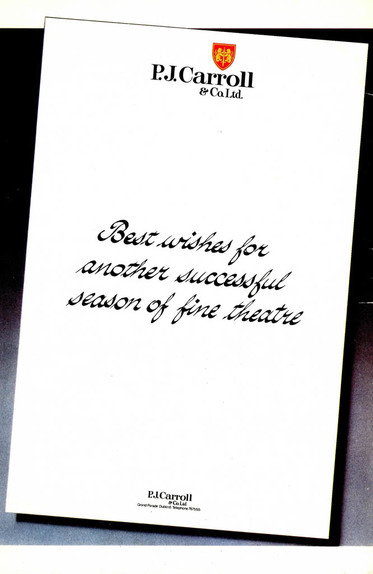 P.J.Carroll
& Co. Ltd.
Best wishes for
another successful
season of fine theatre
P.J.Carroll
& Co. Ltd.
Grand Parade Dublin 6 Telephone